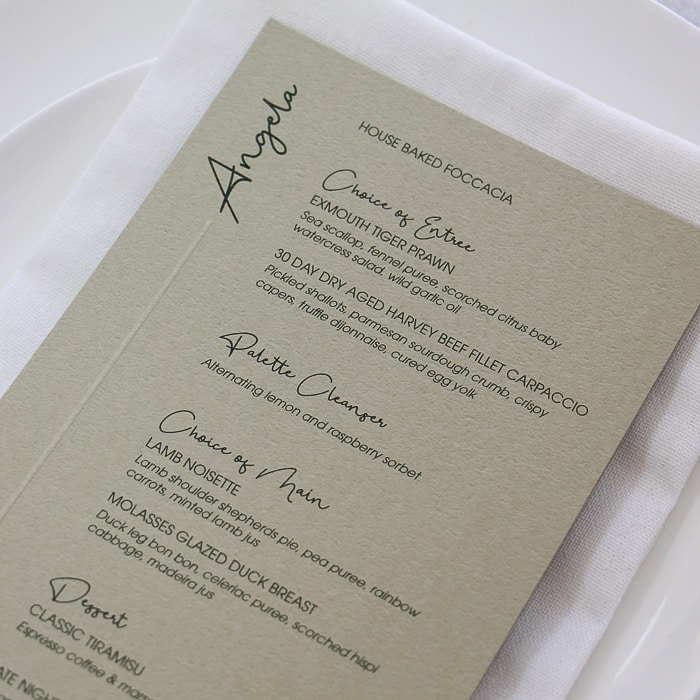 Angela
HOUSE BAKED FOCCACIA
Choice of Entree
EXMOUTH TIGER PRAWN
Sea scallop, fennel puree, scorched citrus baby
watercress salad, wild garlic oil
30 DAY DRY AGED HARVEY BEEF FILLET CARPACCIO
Pickled shallots, parmesan sourdough crumb, crispy
capers, truffle dijonnaise, cured egg yolk
Palette Cleanser
Alternating lemon and raspberry sorbet
Choice of Main
LAMB NOISETTE
Lamb shoulder shepherds pie, pea puree, rainbow
carrots, minted lamb jus
MOLASSES GLAZED DUCK BREAST
Duck leg bon bon, celeriac puree, scorched hispi
cabbage, madeira jus
Dessert
CLASSIC TIRAMISU
Espresso coffee &